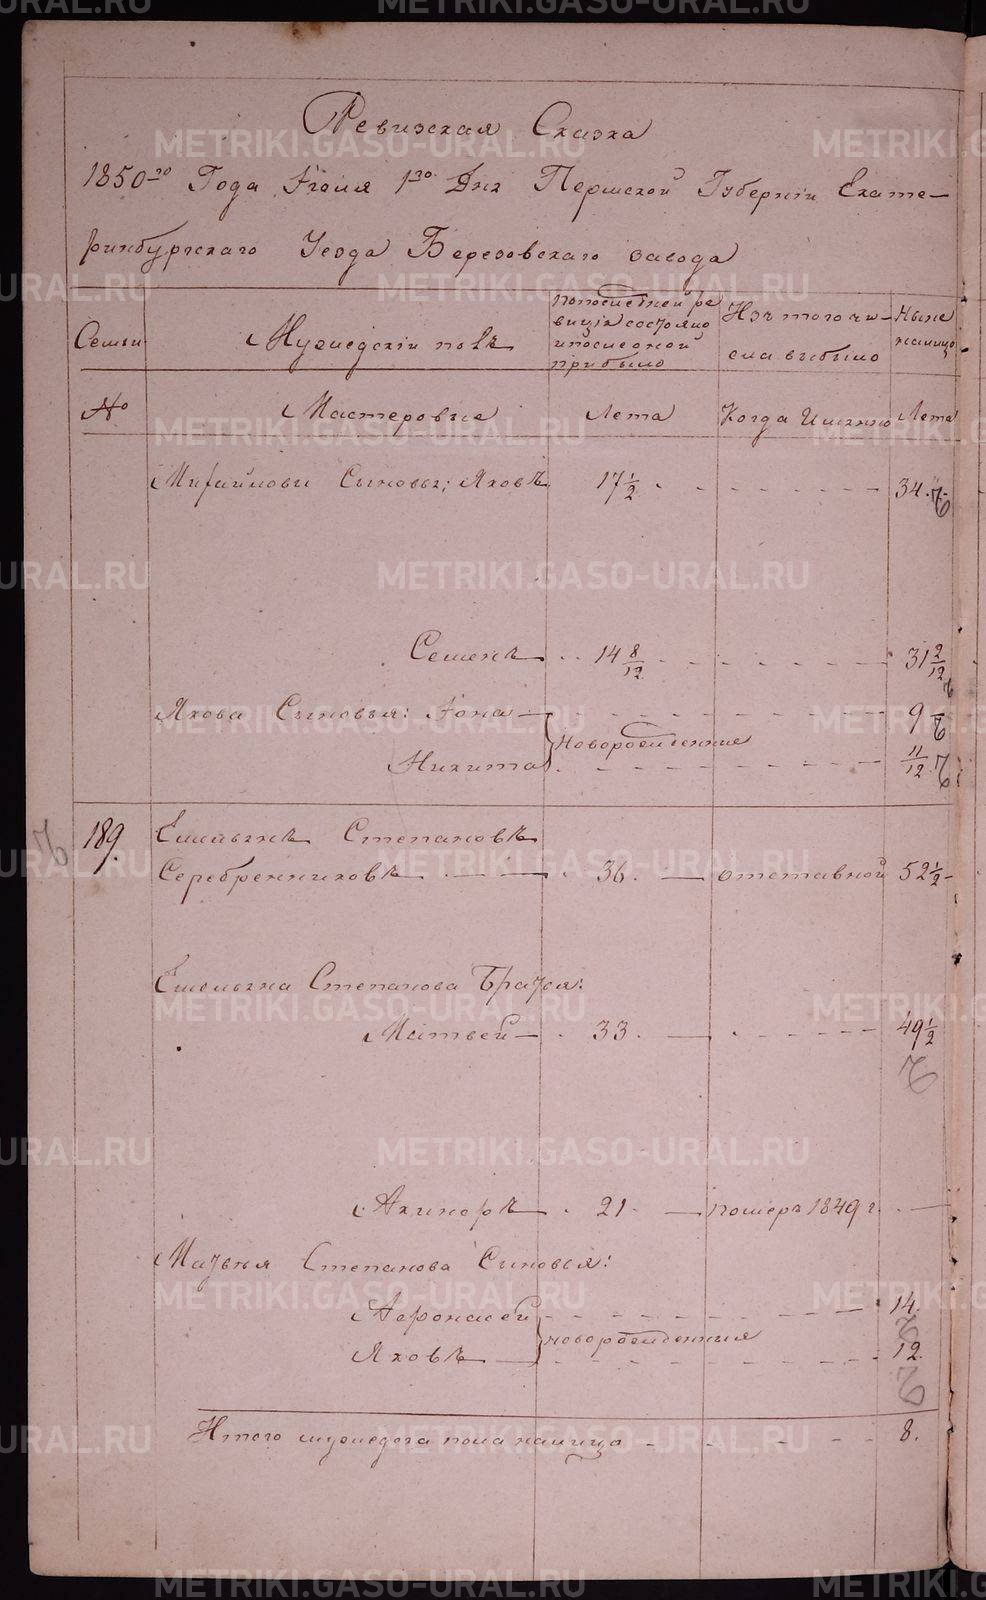 Ревизская Сказка
1850го Года Июля 1го Дня Пермской Губернiи Екате-
ринбургскаго Уезда Березовскаго завода
Семьи
Мужеский полъ
попоследней ре
визiи состояло
ипоследной
прибыло
Изъ того чи-
сла выбыло
Ныне
налицо
№
Мастеровые
Лета
Когда Именно
Лета
Михайловы Сыновья; Яковъ 17 1/2 34.
Семенъ 14 8/12 31 2/12
Якова Сыновья: Iона 9
новорожденные
Никита 11/12
189. Емельянъ Степановъ
Серебренниковъ 36. отставной 52 1/2
Емельяна Степанова Братья:
Матвей 33 49 1/2
Акинфъ 21. померъ 1849 г.
Матвея Степанова Сыновья:
Афонасей 14.
новорожденныя
Яковъ 12.
Итого мужеска пола налицо 8.
METRIKI.GASO-URAL.RU